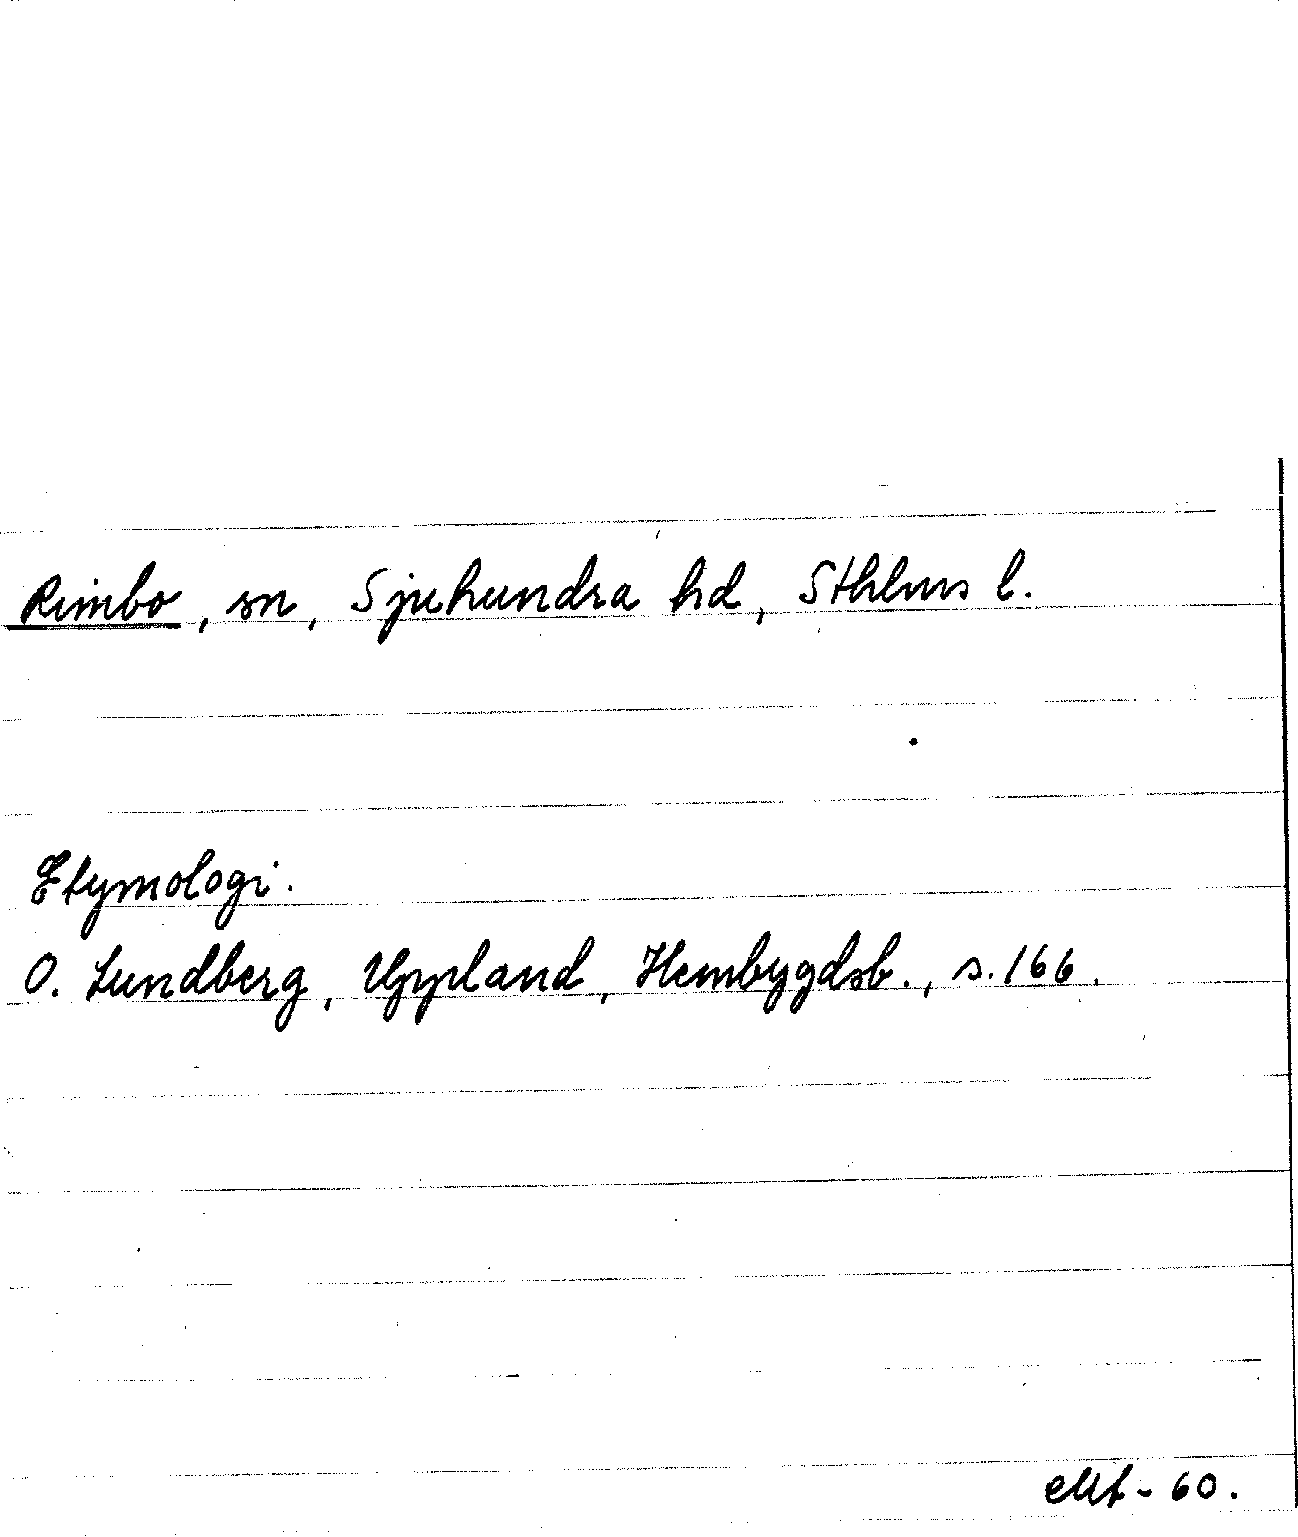 Rimbo, sn, Sjuhundra hd, Sthlms l.
Etymologi.
O. Lundberg, Uppland, Hembygdsb., s. 166.
- 60.